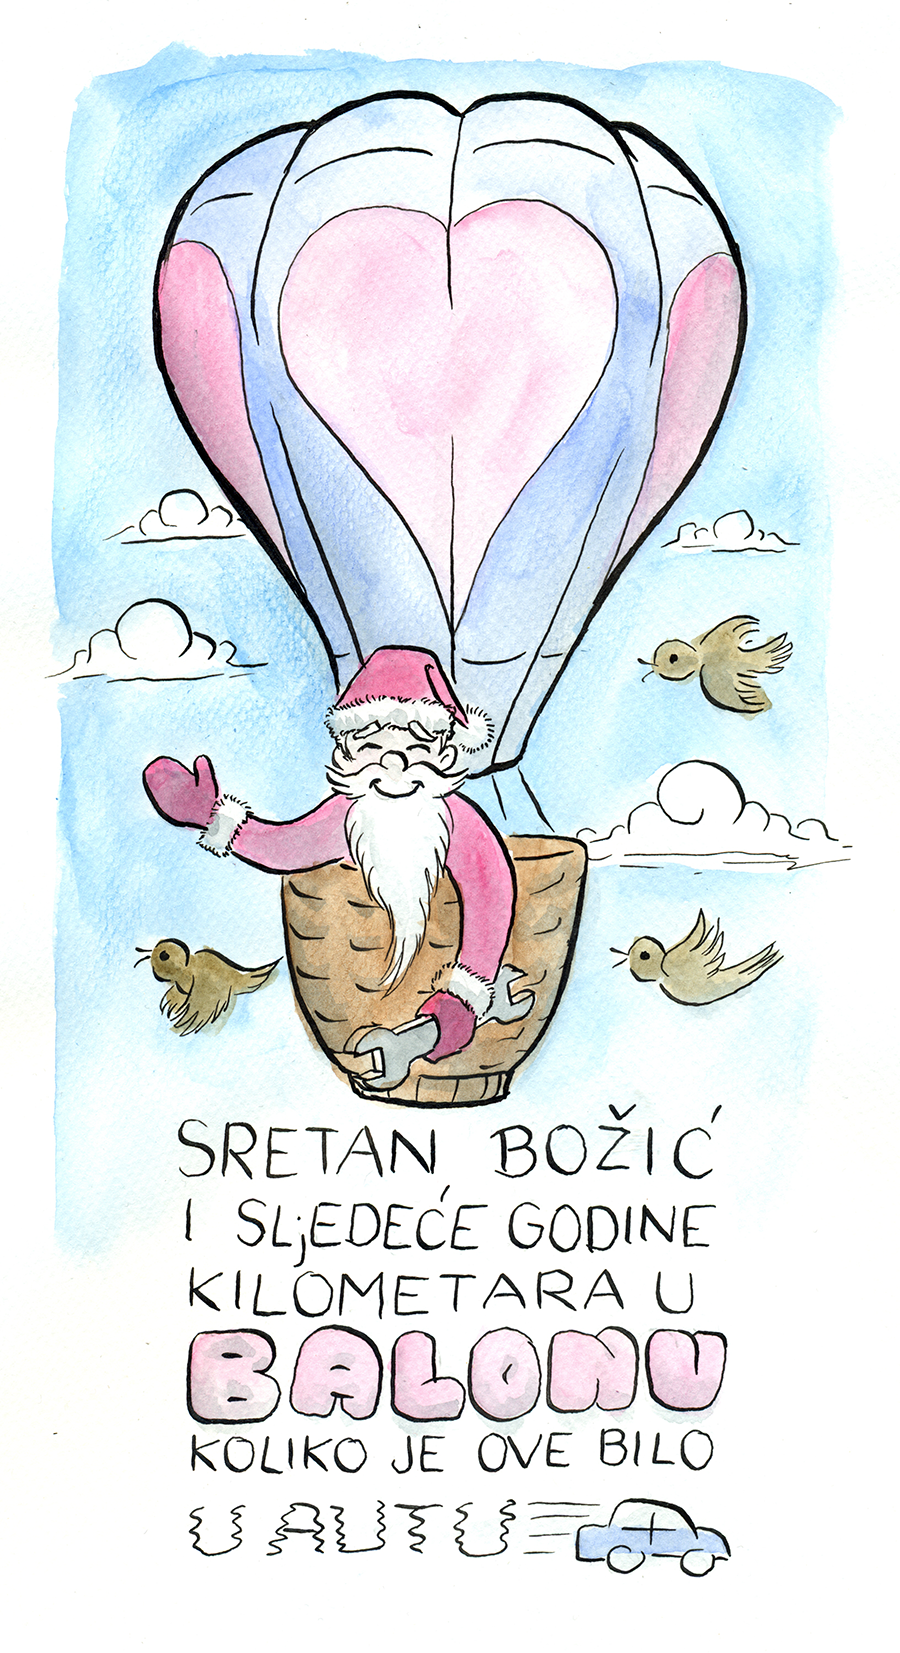 SRETAN BOŽIĆ
I SLjEDEĆE GODINE
KILOMETARA U
BALONU
KOLIKO JE OVE BILO
U AUTU